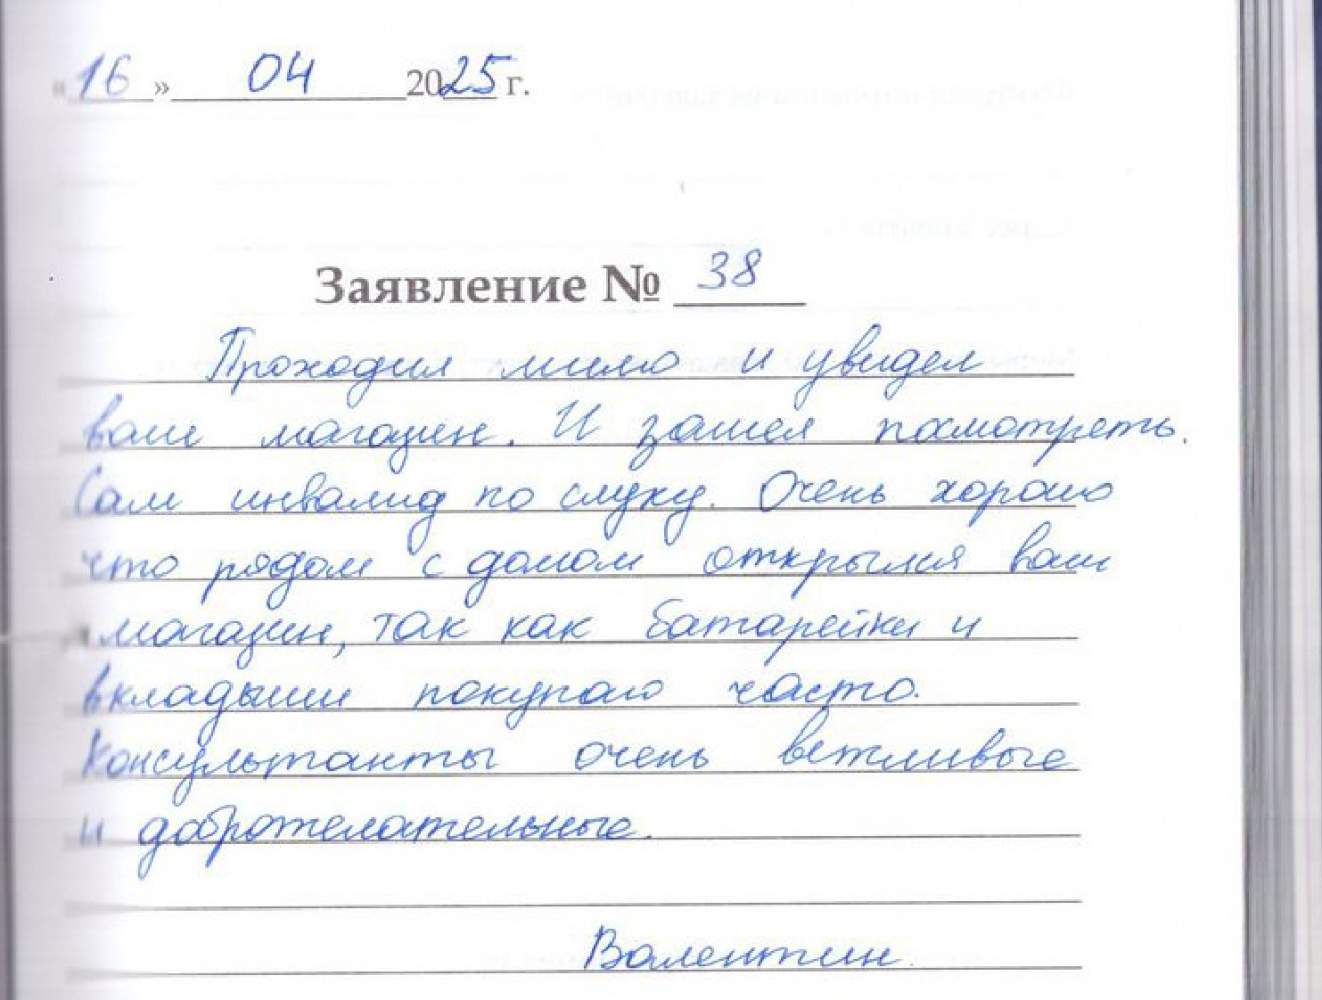 «16» 04 2025 г.
Заявление № 38
Проходил мимо и увидел
ваш магазин. И зашел посмотреть.
Сам инвалид по слуху. Очень хорошо
что рядом с домом открылся ваш
магазин, так как батарейки и
вкладыши покупаю часто.
Консультанты очень вежливые
и доброжелательные.
Валентин.